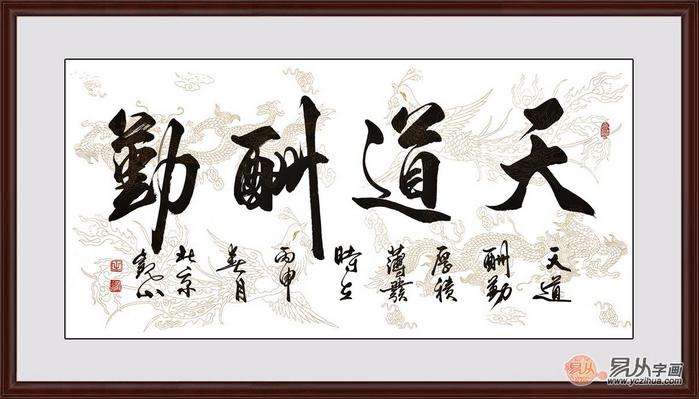 天道酬勤
天道
酬勤
厚積
薄發
時在
丙申
春月
北京
易从
易从字画
www.yczihua.com